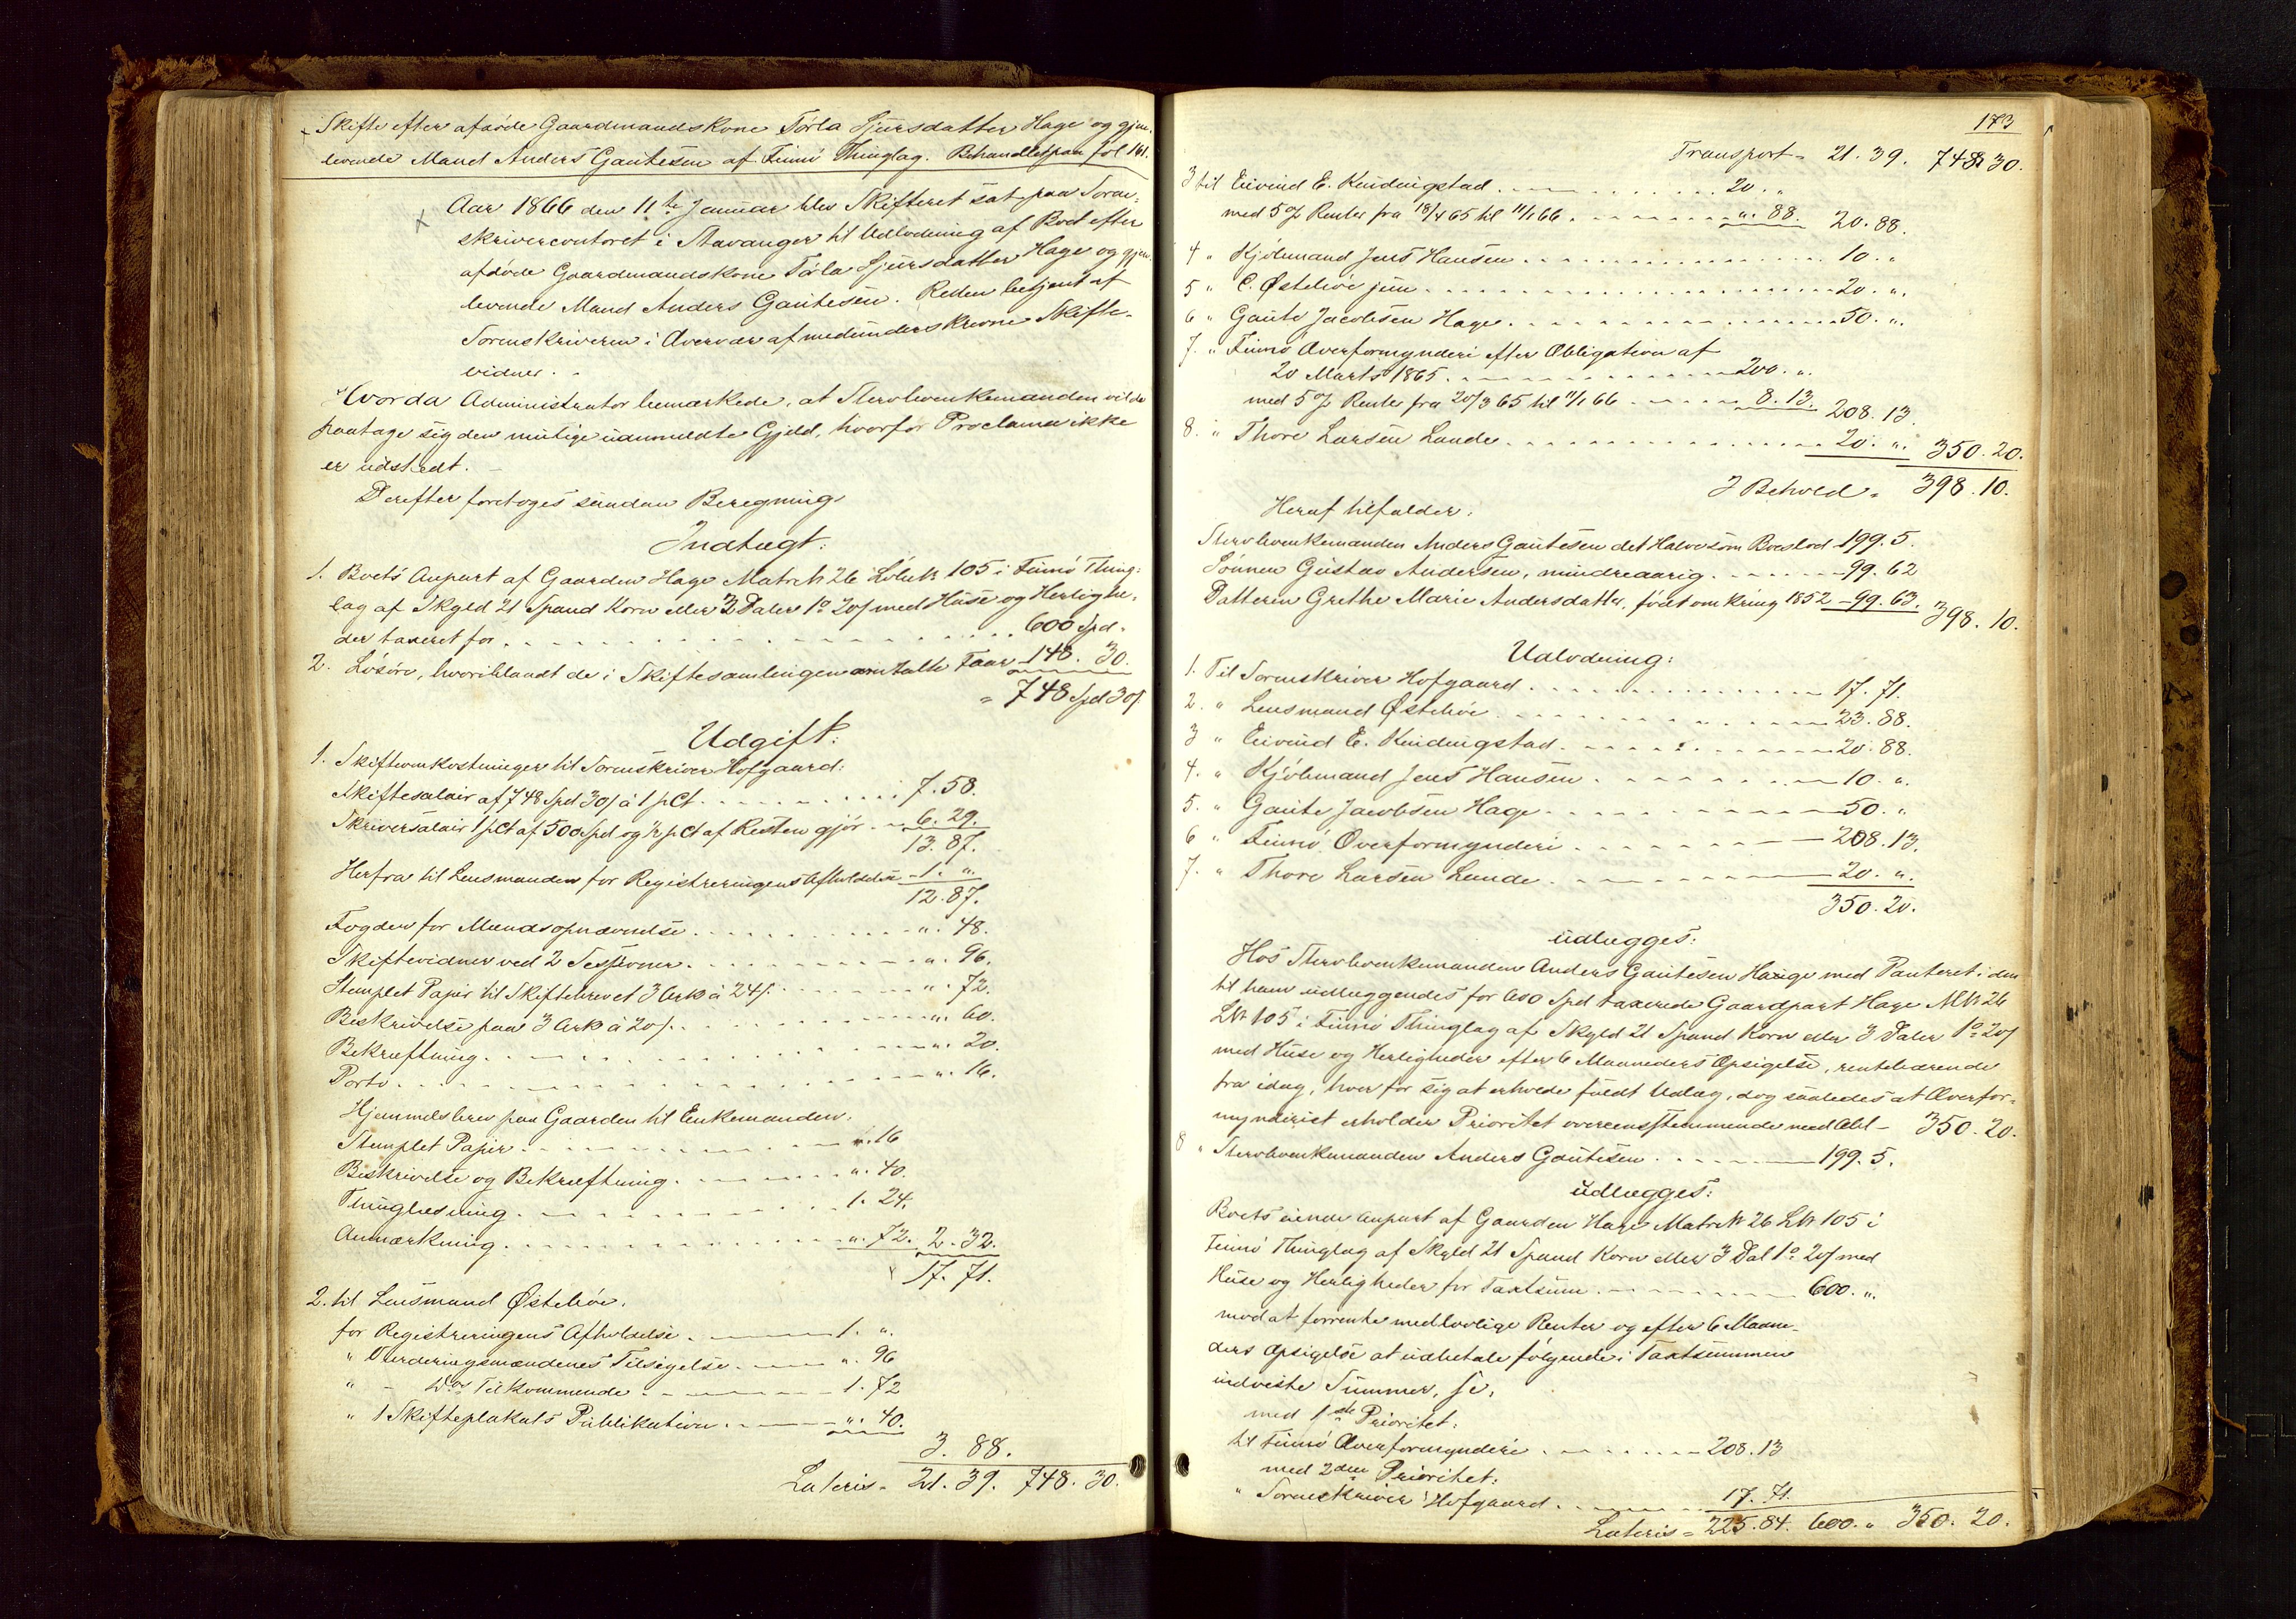 Skifte efter afdøde Gaardmandskone Torla Sjursdatter Hage og gjen-
levende Mand Anders Gautesen af Finnø Thinglag. Behandlet paa fol 161.
Aar 1866 den 11te Januar blev Skifteret sat paa Soren-
skrivercontoret i Stavanger til Udlodning af Boet efter
afdøde Gaardmandskone Torla Sjursdatter Hage og gjen-
levende Mand Anders Gautesen. Retten betjent af
Sorenskriveren i Overvær af medunderskrevne Skifte-
vidner.
Hvorda Administrator bemærkede, at Stervboenkemanden vilde
paatage sig den mulige uanmeldte Gjeld, hvorfor Proclama ikke
er udstedt.
Derefter foretoges saadan Beregning
Indtægt:
1. Boets Anpart af Gaarden Hage Matr N 26 Løbe N 105 i Finnø Thing-
lag af Skyld 21 Spand Korn eller 3 Daler 1 o 20 s med Huse og Herlighe-
der taxeret for 600 Spd.
2. Løsøre, hvoriblandt de i Skiftesamlingen omtalte Faar 148. 30.
= 748 Spd 30 s
Udgift:
1. Skifteomkostninger til Sorenskriver Hofgaard:
Skiftesalair af 748 Spd 30 s à 1 pCt 7. 58.
Skriversalair 1 pCt af 500 Spd og ½ pCt af Resten gjør 6. 29.
13. 87.
Herfra til Lensmanden for Registreringens Afholdelse 1. „
12. 87.
Fogden for Mændsopnævnelse „. 48.
Skiftevidner ved 2 Sessioner „. 96.
Stemplet Papir til Skiftebrevet 3 Ark à 24 s. „. 72.
Beskrivelse paa 3 Ark à 20 s. „. 60.
Bekræftning „. 20.
Porto „. 16.
Hjemmelsbrev paa Gaarden til Enkemanden.
Stemplet Papir „. 16
Beskrivelse og Bekræftning „. 40.
Thinglæsning 1. 24.
Anmærkning „. 72. 2. 32.
17. 71.
2. til Lensmand Østebøe.
for Registreringens Afholdelse 1. „
„ Vurderingsmændenes Tilsigelse „. 96
„ - Do Tilkommende 1. 72
„ 1 Skifteplakats Publikation „. 40.
3. 88.
Lateris = 21. 39. 748. 30.
173
Transport = 21. 39. 748. 30.
3 til Eivind E. Kindingstad 20. „
med 5 % Renter fra 18/4 65 til 11/1 66 „. 88. 20. 88.
4 „ Kjøbmand Jens Hansen 10. „
5 „ C. Østebøe jun 20. „.
6 „ Gaute Jacobsen Hage 50. „.
7. „ Finnø Overformynderi efter Obligation af
20 Marts 1865 200. „.
med 5 % Renter fra 20/3 65 til 11/1 66 8. 13. 208. 13.
8. „ Thore Larsen Lande 20. „. 350. 20.
I Behold = 398. 10.
Heraf tilfalder:
Stervboenkemanden Anders Gautesen det Halve som Boeslod 199. 5.
Sønnen Gustav Andersen, mindreaarig 99. 62
Datteren Grethe Marie Andersdatter, født omkring 1852 99. 63. 398. 10.
Udlodning:
1. Til Sorenskriver Hofgaard 17. 71.
2. „ Lensmand Østebøe 23. 88.
3 „ Eivind E. Kindingstad 20. 88.
4. „ Kjøbmand Jens Hansen 10. „.
5. „ Gaute Jacobsen Hage 50. „
6 „ Finnø Overformynderi 208. 13.
7. „ Thore Larsen Lande 20. „.
350. 20.
udlægges:
Hos Stervboenkemanden Anders Gautesen Hauge med Panteret i den
til ham udlæggendes for 600 Spd taxerede Gaardpart Hage M N 26
L N 105 i Finnø Thinglag af Skyld 21 Spand Korn eller 3 Daler 1 o 20 s
med Huse og Herligheder efter 6 Maaneders Opsigelse, rentebærende
fra idag, hver for sig at erholde fuldt Udlæg, dog saaledes at Overfor-
mynderiet erholder Prioritet overensstemmende med Obl - 350. 20.
8 „ Stervboenkemanden Anders Gautesen 199. 5.
udlægges:
Boets eiende Anpart af Gaarden Hage Matr N 26 L N 105 i
Finnø Thinglag af Skyld 21 Spand Korn eller 3 Dal 1 o 20 s med
Huse og Herligheder for Taxtsum 600. „.
mod at forrente med lovlige Renter og efter 6 Maane-
ders Opsigelse at udbetale følgende i Taxtsummen
indviste Summer, sc.
med 1ste Prioritet:
til Finnø Overformynderi 208. 13
med 2den Prioritet:
„ Sorenskriver Hofgaard 17. 71.
Lateris = 225. 84. 600. „ 350. 20.